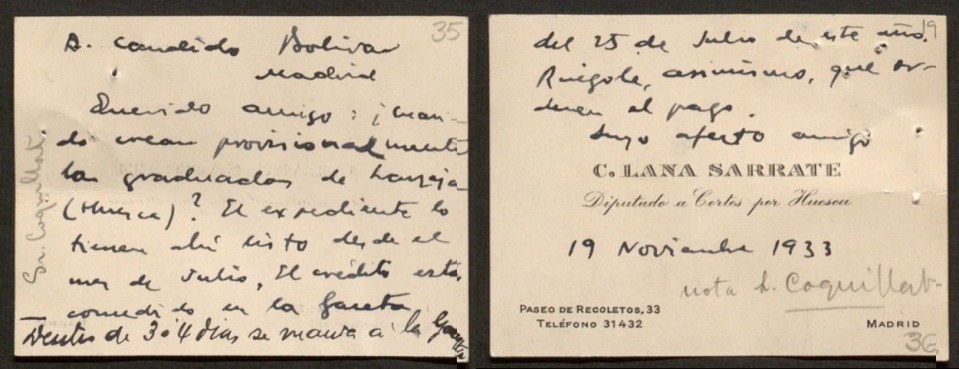 35
D. Candido Bolivar
Madrid
Querido amigo: ¡Cuan-
do crean provisionalmente
las graduadas de Lanaja
(Huesca)? El expediente lo
tienen ahí listo desde el
mes de Julio, El crédito está
concedido en la Gaceta
Dentro de 3 o 4 días se manda a la Gaceta
Sr. Coquillat
19
del 25 de Julio de este año.
Ruégole, asimismo, que or-
denen el pago.
Suyo afecto amigo
C. LANA SARRATE
Diputado a Cortes por Huesca
19 Noviembre 1933
nota S. Coquillat
PASEO DE RECOLETOS, 33
TELÉFONO 31432
MADRID
36